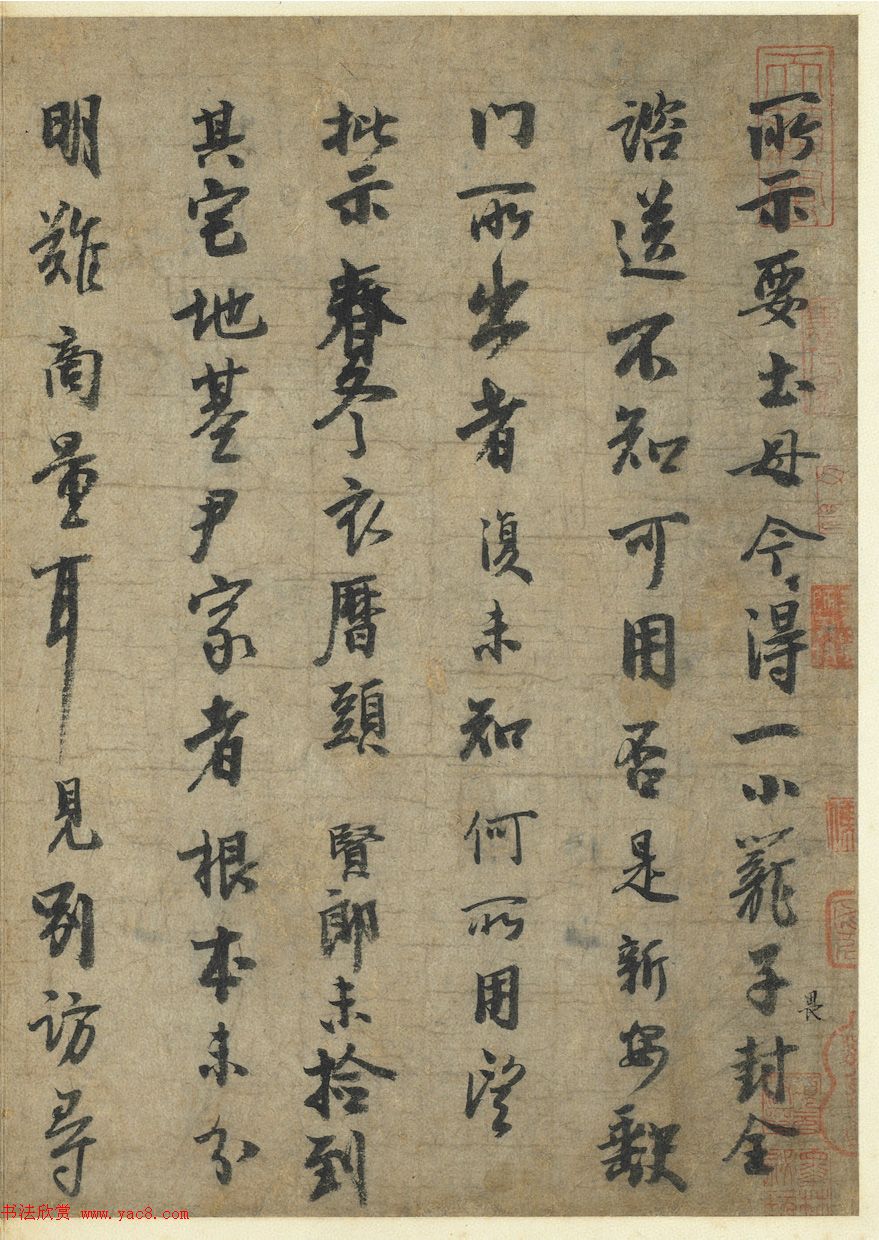 所示要土母今得一小籠子封全
諮送不知可用否是新安缺
門所出者復未知何所用望
批示春冬衣曆頭賢郎未拾到
其宅地基尹家者根本未分
明難商量耳見別訪尋
畏
书法欣赏 www.yac8.com